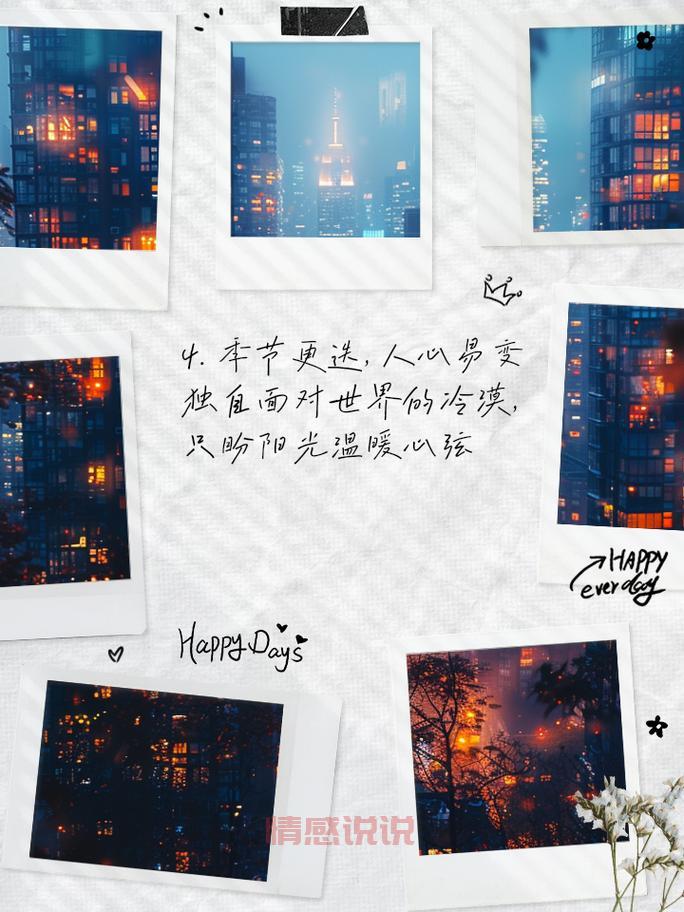 4. 季节更迭，人心易变
独自面对世界的冷漠，
只盼阳光温暖心弦
HAPPY
everday
Happy Days
情感说说